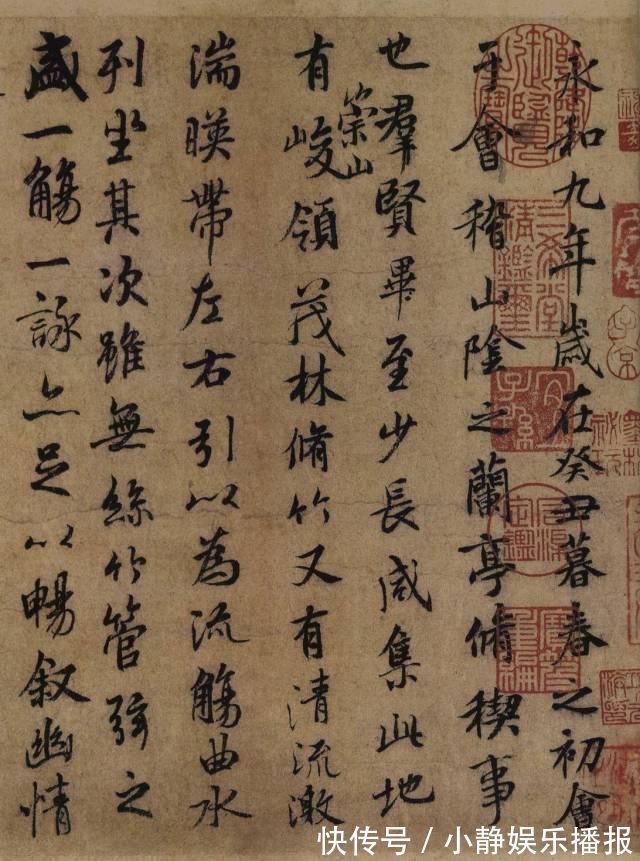 永和九年歲在癸丑暮春之初會
于會稽山陰之蘭亭脩稧事
也羣賢畢至少長咸集此地
有崇山峻領茂林脩竹又有清流激
湍暎帶左右引以為流觴曲水
列坐其次雖無絲竹管弦之
盛一觴一詠亦足以暢叙幽情
三希堂精鑑璽
宜子孫
快传号 / 小静娱乐播报